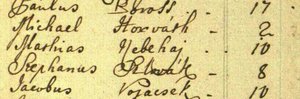 Paulus - 17
Michael Horváth - 2
Mathias Nebehaj - 10
Stephanus - 8
Jacobus Vojacsek - 10